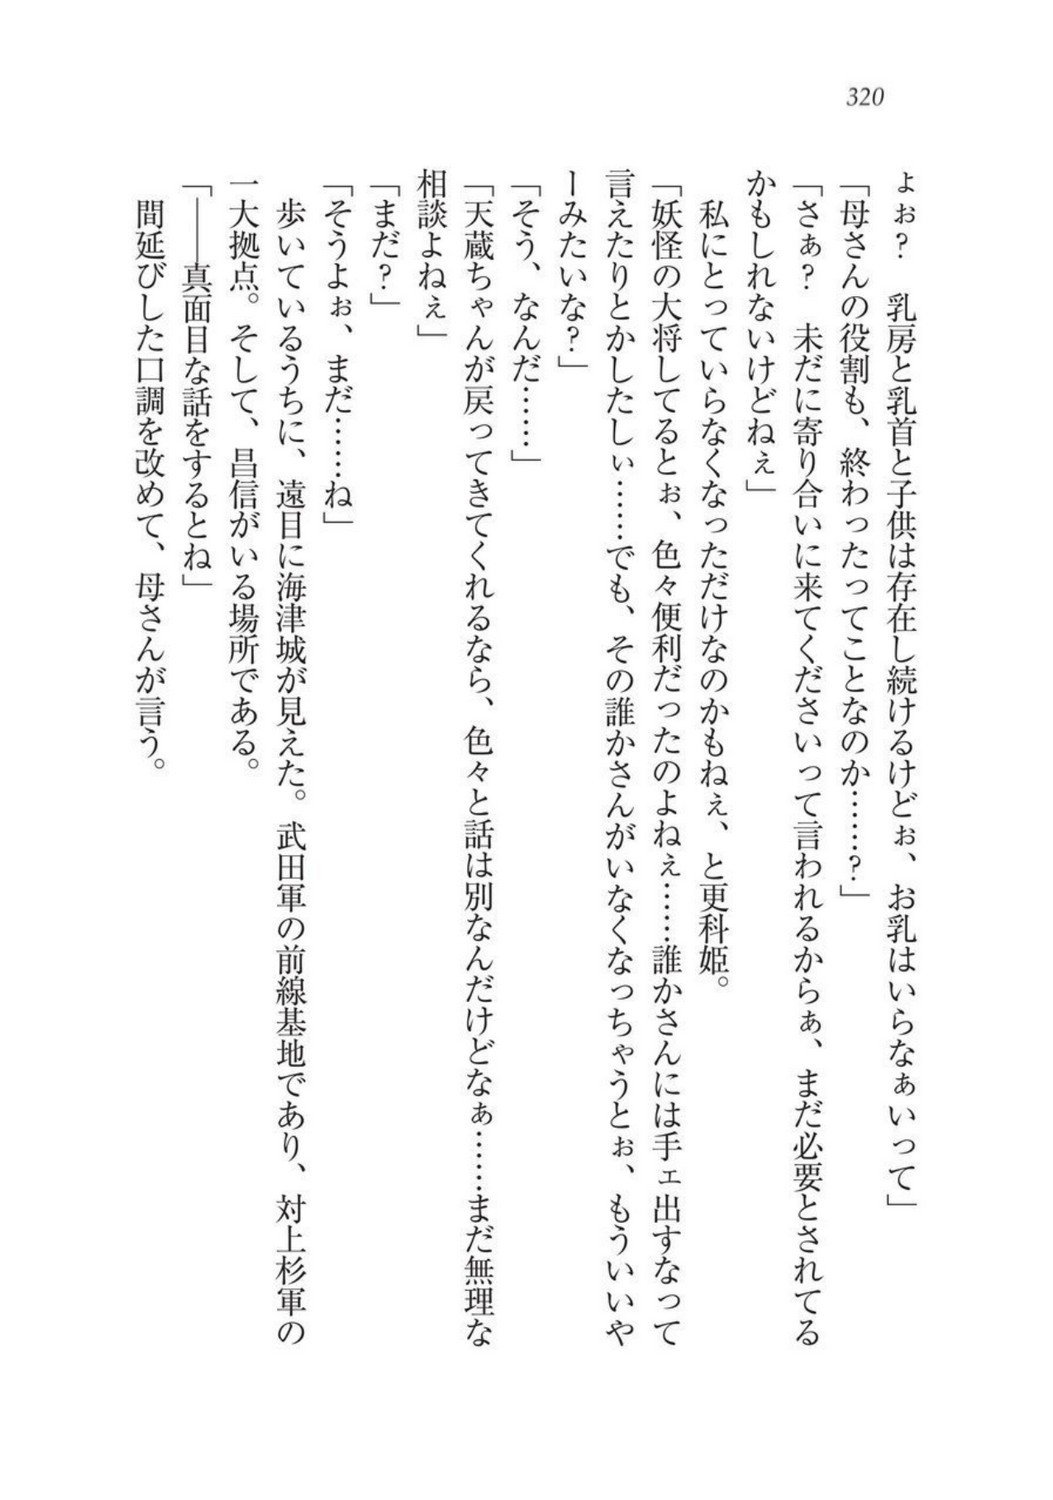 320
ょぉ?　乳房と乳首と子供は存在し続けるけどぉ、お乳はいらなぁいって」
「母さんの役割も、終わったってことなのか……?」
「さぁ?　未だに寄り合いに来てくださいって言われるからぁ、まだ必要とされてる
かもしれないけどねぇ」
　私にとっていらなくなっただけなのかもねぇ、と更科姫。
「妖怪の大将してるとぉ、色々便利だったのよねぇ……誰かさんには手ェ出すなって
言えたりとかしたしぃ……でも、その誰かさんがいなくなっちゃうとぉ、もういいや
ーみたいな?」
「そう、なんだ……」
「天蔵ちゃんが戻ってきてくれるなら、色々と話は別なんだけどなぁ……まだ無理な
相談よねぇ」
「まだ?」
「そうよぉ、まだ……ね」
　歩いているうちに、遠目に海津城が見えた。武田軍の前線基地であり、対上杉軍の
一大拠点。そして、昌信がいる場所である。
「――真面目な話をするとね」
　間延びした口調を改めて、母さんが言う。